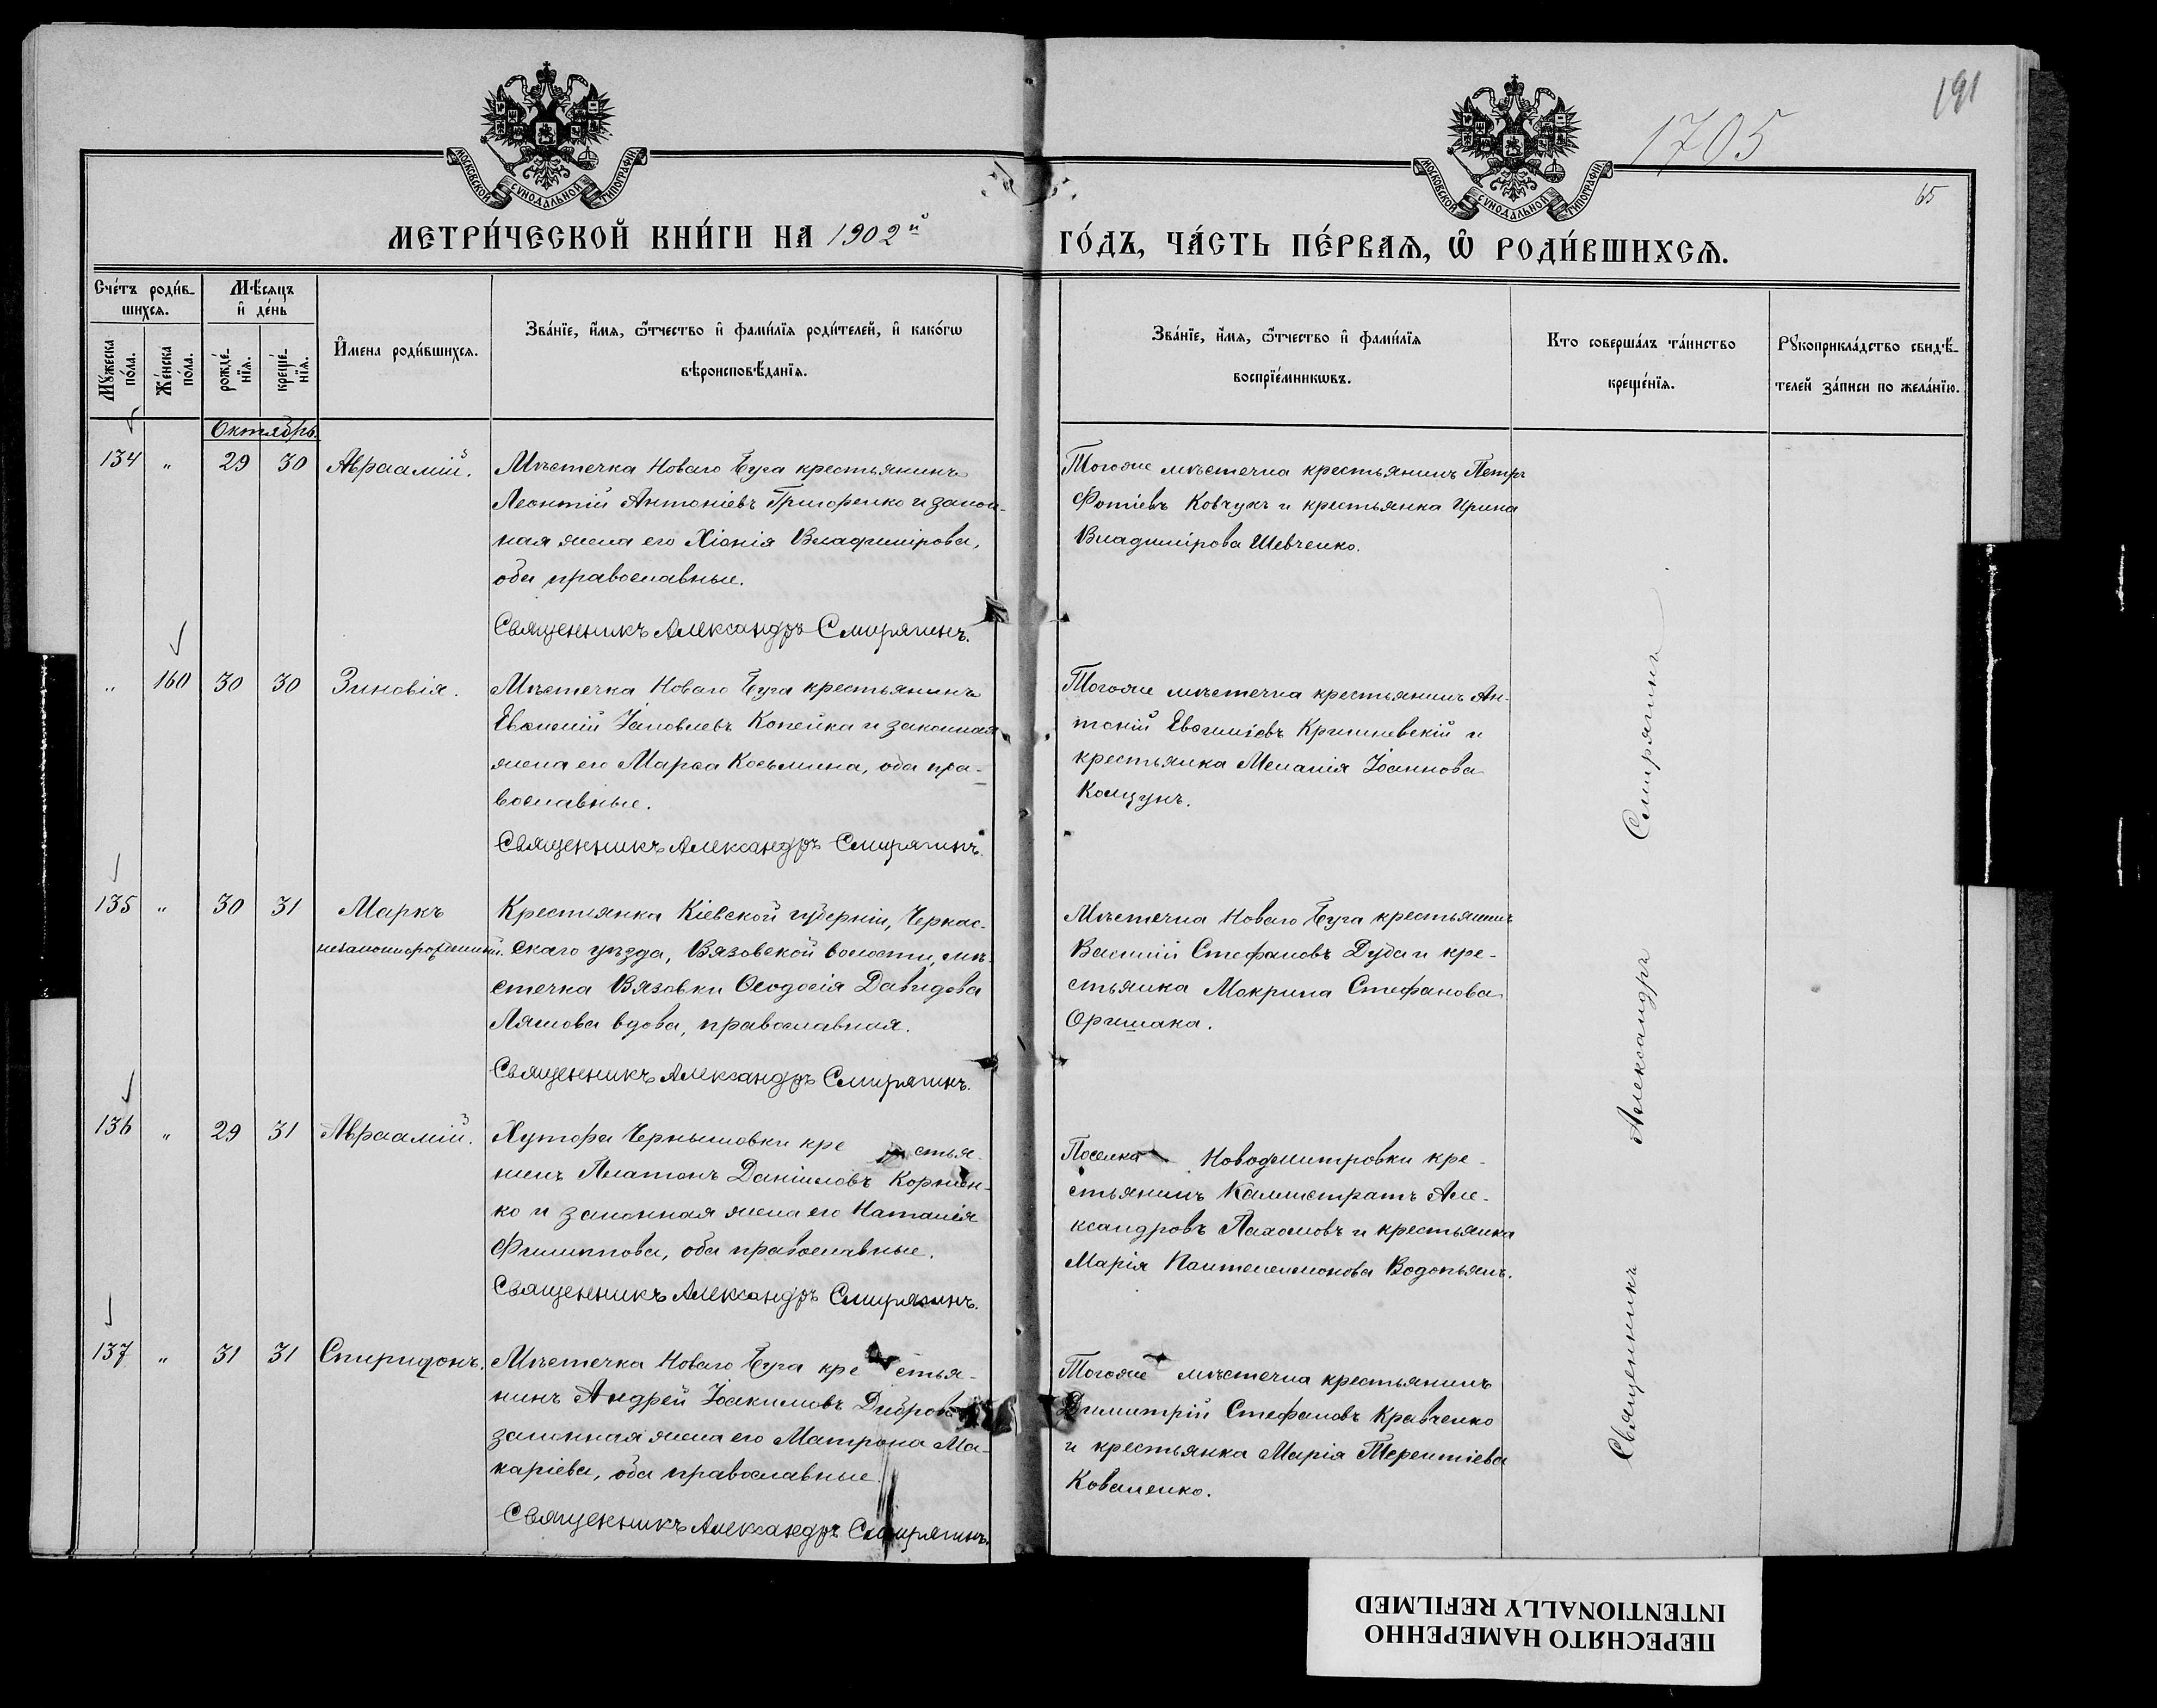 191
1705
65
МОСКОВСКОЙ СѴНОДАЛЬНОЙ ТИПОГРАФІИ
МОСКОВСКОЙ СѴНОДАЛЬНОЙ ТИПОГРАФІИ
МЕТРИ́ЧЕСКОЙ КНИ́ГИ НА 1902й ГО́ДЪ, ЧА́СТЬ ПЕ́РВАѦ, Ѡ҆ РОДИ́ВШИХСѦ.
Сче́тъ роди́в-
шихсѧ.
Мꙋжеска по́ла.
Же́нска по́ла.
Мѣсѧцъ
и҆ де́нь
рожде́-
нїѧ.
креще́-
нїѧ.
И҆мена роди́вшихсѧ.
Зва́нїе, и҆́мѧ, ѻ҆́тчество и҆ фами́лїѧ роди́телей, и҆ како́гѡ
вѣроисповѣ́данїѧ.
Зва́нїе, и҆́мѧ, ѻ҆́тчество и҆ фами́лїѧ
воспрїе́мникѡвъ.
Кто соверша́лъ та́инство
креще́нїѧ.
Рꙋкоприкла́дство свидѣ́-
телей за́писи по жела́нїю.
Октябрь.
134 " 29 30 Авраамій.
Мѣстечка Новаго Буга крестьянинъ
Леонтій Антоніевъ Григоренко и закон-
ная жена его Хіонія Владимірова,
оба православные.
Священникъ Александръ Смирягинъ.
Тогоже мѣстечка крестьянинъ Петръ
Фотіевъ Ковчукъ и крестьянка Ирина
Владимірова Шевченко.
" 160 30 30 Зиновія.
Мѣстечка Новаго Буга крестьянинъ
Іаковлевъ Копейка и законная
жена его Марѳа Косьмина, оба пра-
вославные.
Священникъ Александръ Смирягинъ.
Тогоже мѣстечка крестьянинъ Ан-
тоній Кришневскій и
крестьянка Меланія Іоаннова
Колцунъ.
135 " 30 31 Маркъ
незаконнорожденный.
Крестьянка Кіевской губерніи, Черкас-
скаго уѣзда, Вязовской волости, мѣ-
стечка Вязовки Ѳеодосія Давидова
Ляшова вдова, православная.
Священникъ Александръ Смирягинъ.
Мѣстечка Новаго Буга крестьянинъ
Василій Стефановъ Дуба и кре-
стьянка Макрина Стефанова
Оришака.
136 " 29 31 Авраамій.
Хутора Чернышовки кре стья-
нинъ Платонъ Даніиловъ Корніен-
ко и законная жена его Наталія
Филиппова, оба православные.
Священникъ Александръ Смирягинъ.
Поселка Новодмитровки кре-
стьянинъ Каллистратъ Але-
ксандровъ Пахомовъ и крестьянка
Марія Пантелеимонова Водопьянъ.
137 " 31 31 Спиридонъ.
Мѣстечка Новаго Буга кре стья-
нинъ Андрей Іоакимовъ Диброва
законная жена его Матрона Ма-
каріева, оба православные.
Священникъ Александръ Смирягинъ.
Тогоже мѣстечка крестьянинъ
Димитрій Стефановъ Кравченко
и крестьянка Марія Терентіева
Коваленко.
Священникъ Александръ Смирягинъ
ПЕРЕСНЯТО НАМЕРЕННО
INTENTIONALLY REFILMED